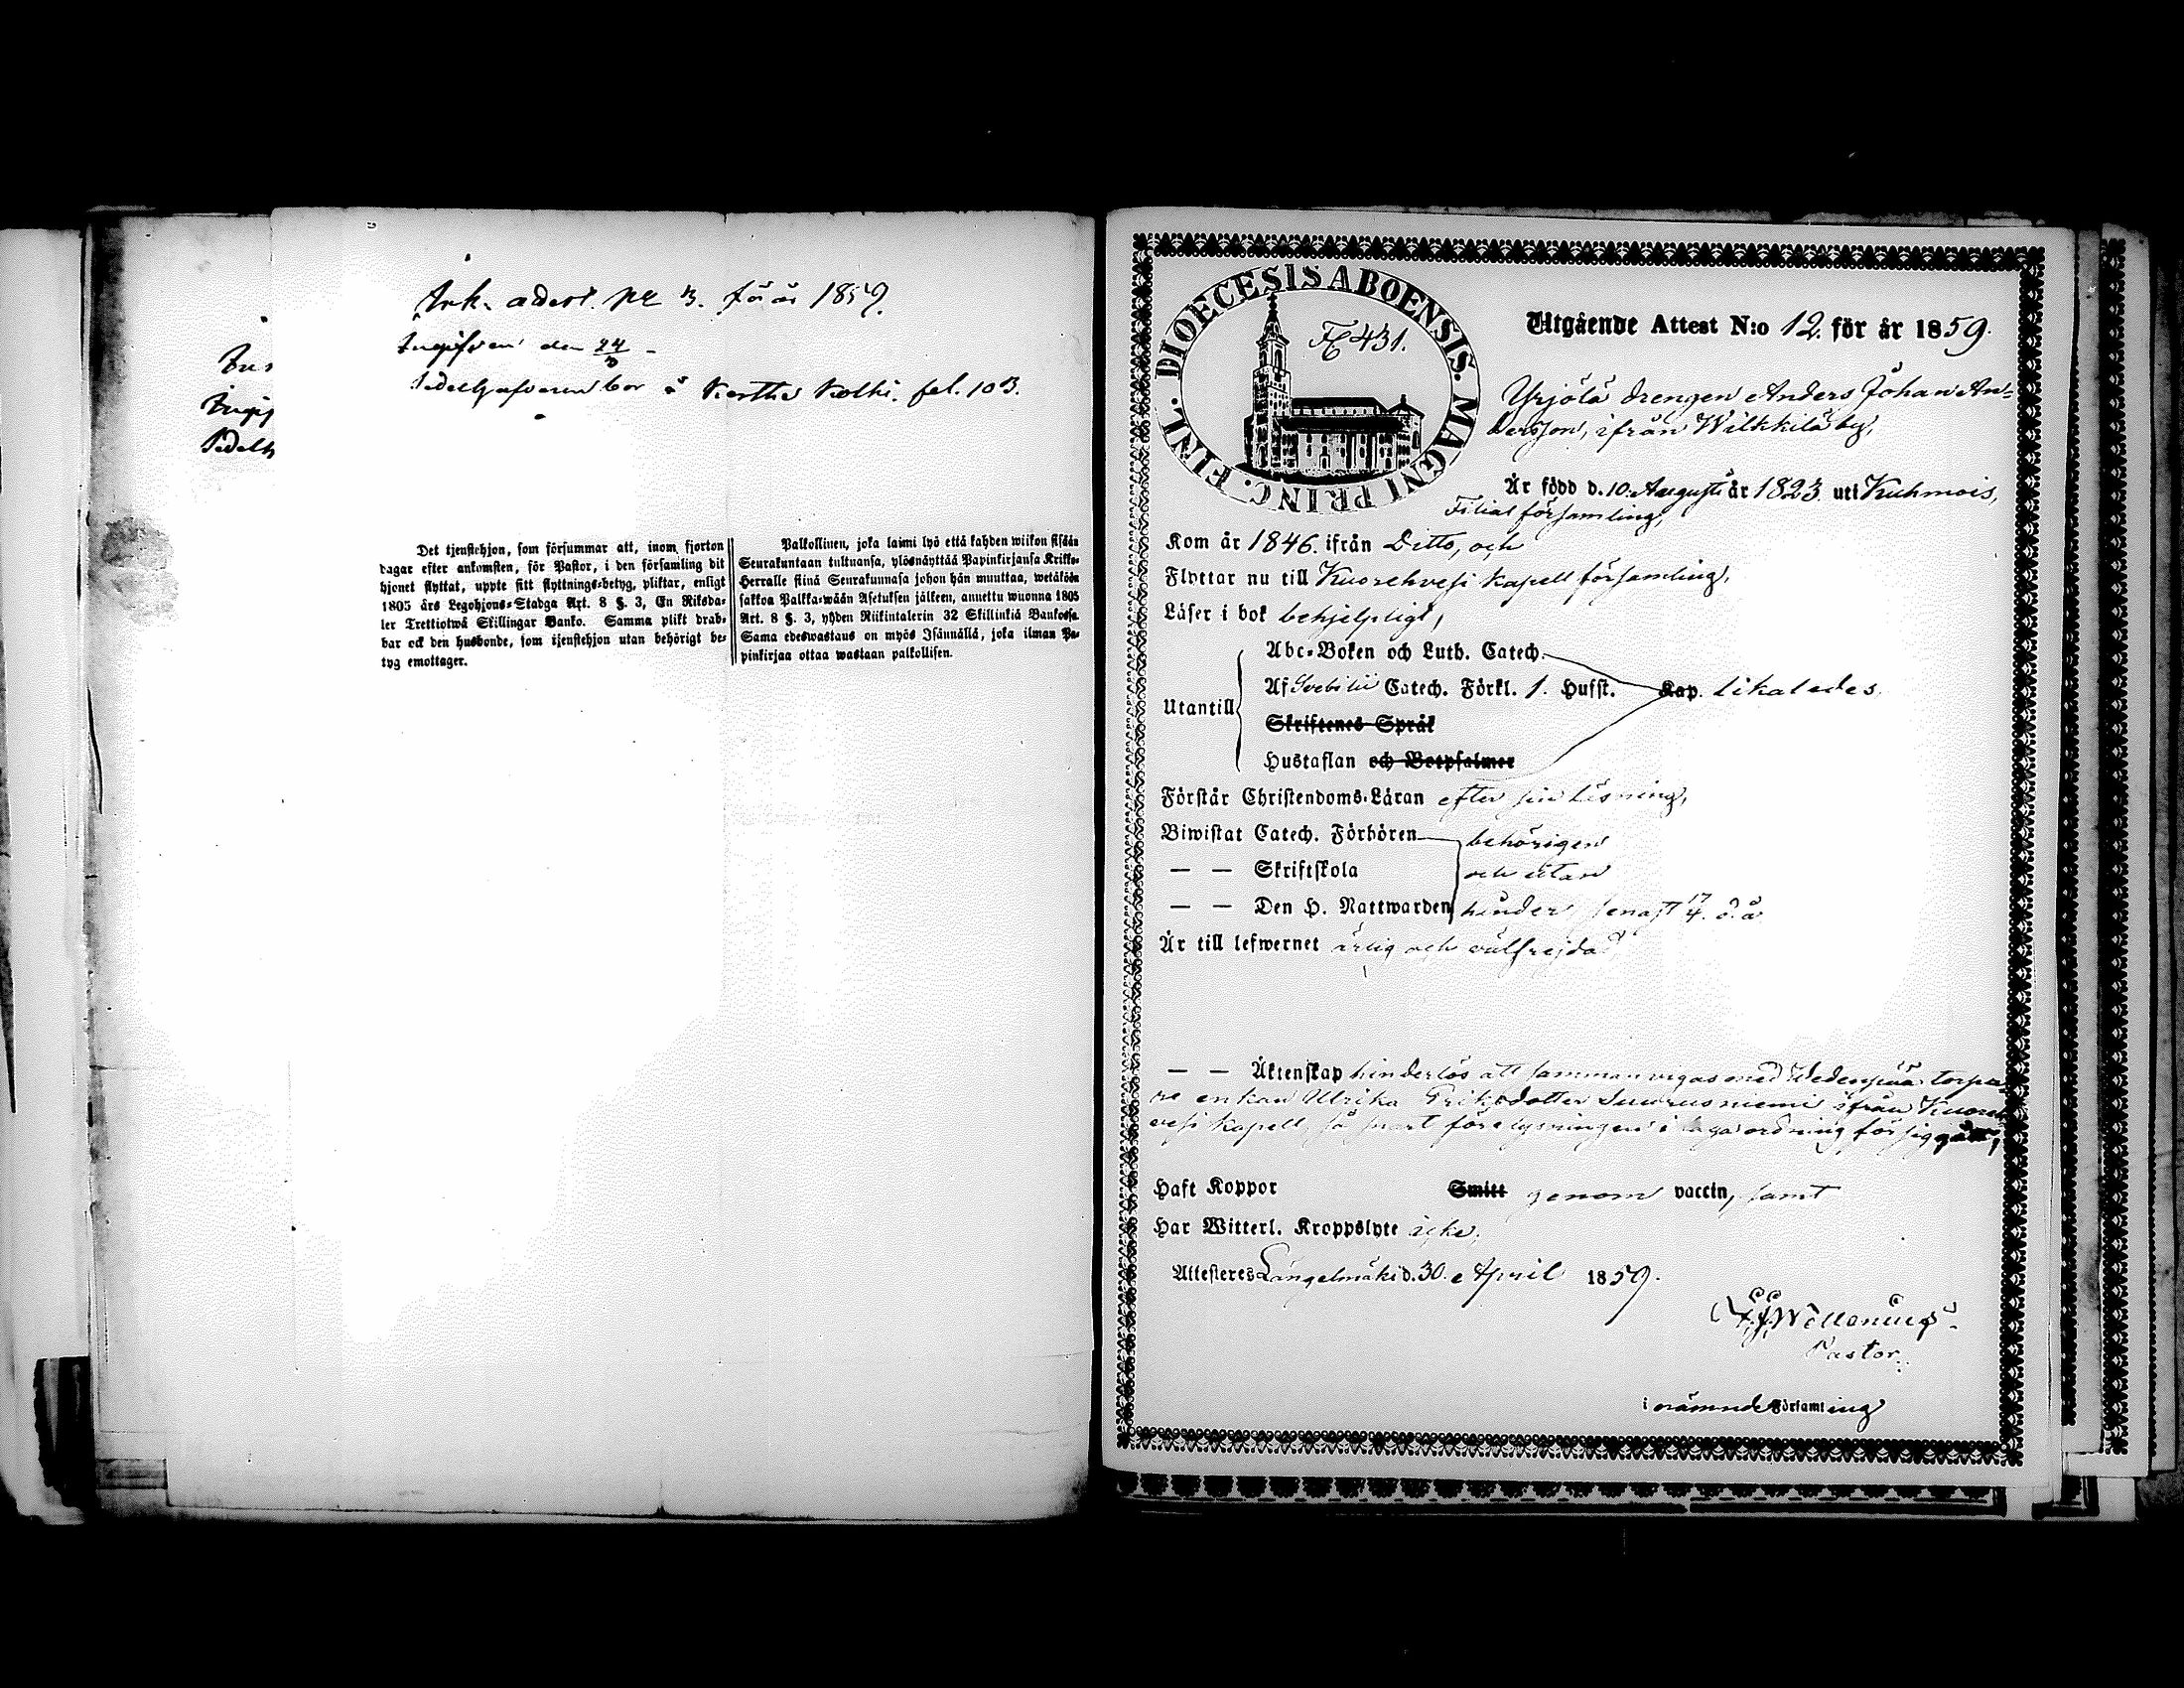 Ink. attest. No 3. för år 1859.
Ingifven den 24/3
Sedelhafveren bor å Kerttu Kolki. fol. 103.
Ink
Ingif
Sedelh
Det tjenstehjon, som försummar att, inom fjorton
dagar efter ankomsten, för Pastor, i den församling dit
hjonet flyttat, uppte sitt flyttnings-betyg, pliktar, enligt
1805 års Legohjons-Stadga Art. 8 §. 3, En Riksda-
ler Trettiotwå Skillingar Banko. Samma plikt drab-
bar ock den husbonde, som tjenstehjon utan behörigt be-
tyg emottager.
Palkollinen, joka laimi lyö että kahden wiikon sisään
Seurakuntaan tultuansa, ylösnäyttää Papinkirjansa Kirkko-
Herralle siinä Seurakunnasa johon hän muuttaa, wetäköön
sakkoa Palkka-wään Asetuksen jälkeen, annettu wuonna 1805
Art. 8 §. 3, yhden Riikintalerin 32 Skillinkiä Bankossa.
Sama edeswastaus on myös Isännällä, joka ilman Pa-
pinkirjaa ottaa wastaan palkollisen.
DIOECESIS ABOENSIS. MAGNI PRINC. FINL.
431.
Utgående Attest N:o 12. för år 1859.
Yrjölä drengen Anders Johan An-
dersson, ifrån Wilkkilä by,
Är född d. 10. Augusti år 1823. uti Kuhmois,
Filial församling,
Kom år 1846. ifrån Ditto, och
Flyttar nu till Kuorehvesi Kapell församling,
Läser i bok behjelpligt,
Utantill
Abc-Boken och Luth. Catech.
Af Svebilii Catech. Förkl. 1. Hufst. Kap. likaledes
Skriftenes Språk
Hustaflan och Botpsalmer
Förstår Christendoms-Läran efter sin läsning,
Biwistat Catech. Förhören behörigen
— — Skriftskola och utan
— — Den H. Nattwarden hinder, senast 17/4. d. å.
Är till lefwernet ärlig och välfrejdad
— — Äktenskap hinderlös att sammanvigas med Wedenpää torpa-
re enkan Ulrika Eriksdotter Suurusniemi ifrån Kuoreh-
vesi Kapell, så snart förelysningen i laga ordning för sig gått,
Haft Koppor Smitt genom vaccin, samt
Har Witterl. Kroppslyte icke,
Attesteres Längelmäki d. 30. April 1859.
Wallenius
Pastor
i nämnde Församling